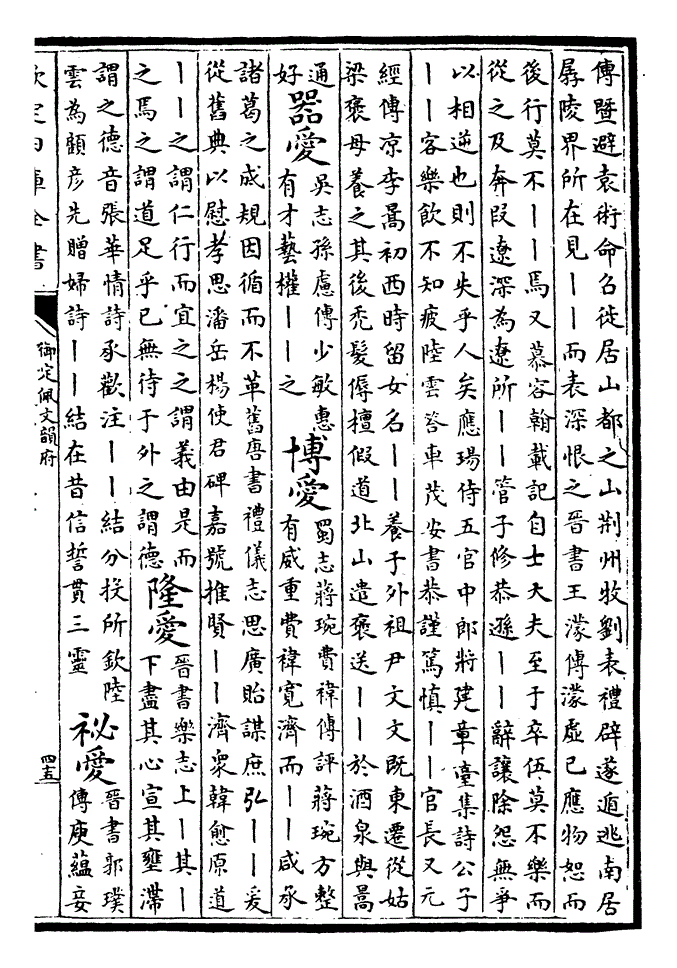 傳暨避袁術命召徙居山都之山荆州牧劉表禮辟遂遁逃南居
孱陵界所在見丨丨而表深恨之晉書王濛傳濛虛已應物恕而
後行莫不丨丨焉又慕容翰載記自士大夫至于卒伍莫不樂而
從之及奔叚遼深為遼所丨丨管子修恭遜丨丨辭讓除怨無爭
以相逆也則不失乎人矣應瑒侍五官中郎將建章臺集詩公子
丨丨客樂飲不知疲陸雲答車茂安書恭謹篤慎丨丨官長又元
經傳凉李暠初西時留女名丨丨養子外祖尹文文既東遷從姑
梁褒母養之其後禿髮傉檀假道北山遣褒送丨丨於酒泉與暠
通
好
器愛
吳志孫慮傳少敏惠
有才藝權丨丨之
博愛
蜀志蔣琬費禕傳評蔣琬方整
有威重費禕寬濟而丨丨咸承
諸葛之成規因循而不革舊唐書禮儀志思廣貽謀庶弘丨丨爰
從舊典以慰孝思潘岳楊使君碑嘉號推賢丨丨濟衆韓愈原道
丨丨之謂仁行而宜之之謂義由是而
之焉之謂道足乎已無待于外之謂德
隆愛
晉書樂志上丨其丨
下盡其心宣其壅滯
謂之德音張華情詩承歡注丨丨結分投所欽陸
雲為顧彦先贈婦詩丨丨結在昔信誓貫三靈
祕愛
晉書郭璞
傳庾蘊妾
欽定四庫全書
御定佩文韻府
四十五